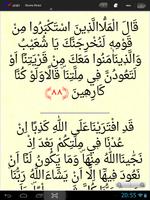 قَالَ الْمَلَأُ الَّذِينَ اسْتَكْبَرُوا مِنْ
قَوْمِهِ لَنُخْرِجَنَّكَ يَا شُعَيْبُ
وَالَّذِينَ آمَنُوا مَعَكَ مِنْ قَرْيَتِنَا أَوْ
لَتَعُودُنَّ فِي مِلَّتِنَا قَالَ أَوَلَوْ كُنَّا
كَارِهِينَ ﴿٨٨﴾
قَدِ افْتَرَيْنَا عَلَى اللَّهِ كَذِبًا إِنْ
عُدْنَا فِي مِلَّتِكُمْ بَعْدَ إِذْ
نَجَّانَا اللَّهُ مِنْهَا وَمَا يَكُونُ لَنَا أَنْ
نَعُودَ فِيهَا إِلَّا أَنْ يَشَاءَ اللَّهُ رَبُّنَا
20:55